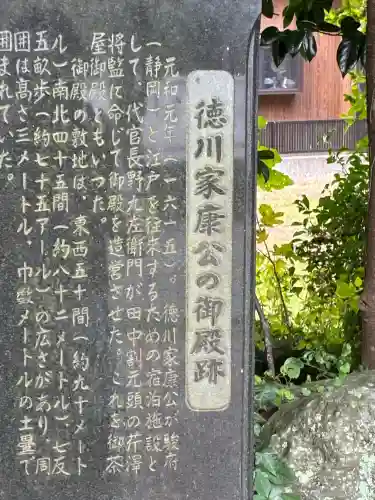 徳川家康公の御殿跡
元和元年（一六一五）。徳川家康公が駿府
（静岡）と江戸を往来するための宿泊施設と
して、代官長野九左衛門が田中割元頭の芹澤
将監に命じて御殿を造営させた。これを御茶
屋御殿ともいった。
御殿の敷地は、東西五十間（約九十メート
ル）南北四十五間（約八十二メートル）、七反
五畝歩（約七十五アール）の広さがあり、周
囲は高さ三メートル、巾数メートルの土塁で
囲まれていた。